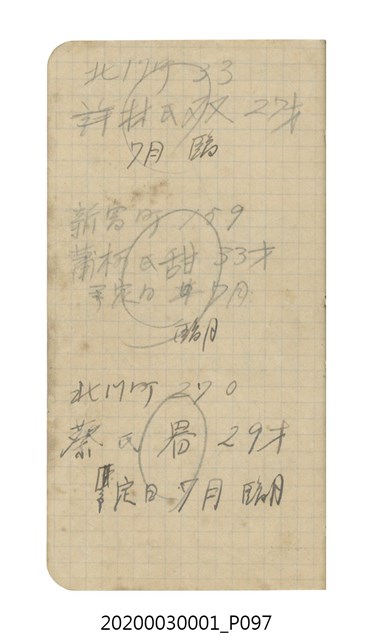 北川町 33
許林氏双 27才
7月 臨
新富町 159
蕭柯氏甜 33才
予定日 7月
臨月
北川町 270
蔡氏 29才
予定日 7月 臨月
20200030001_P097